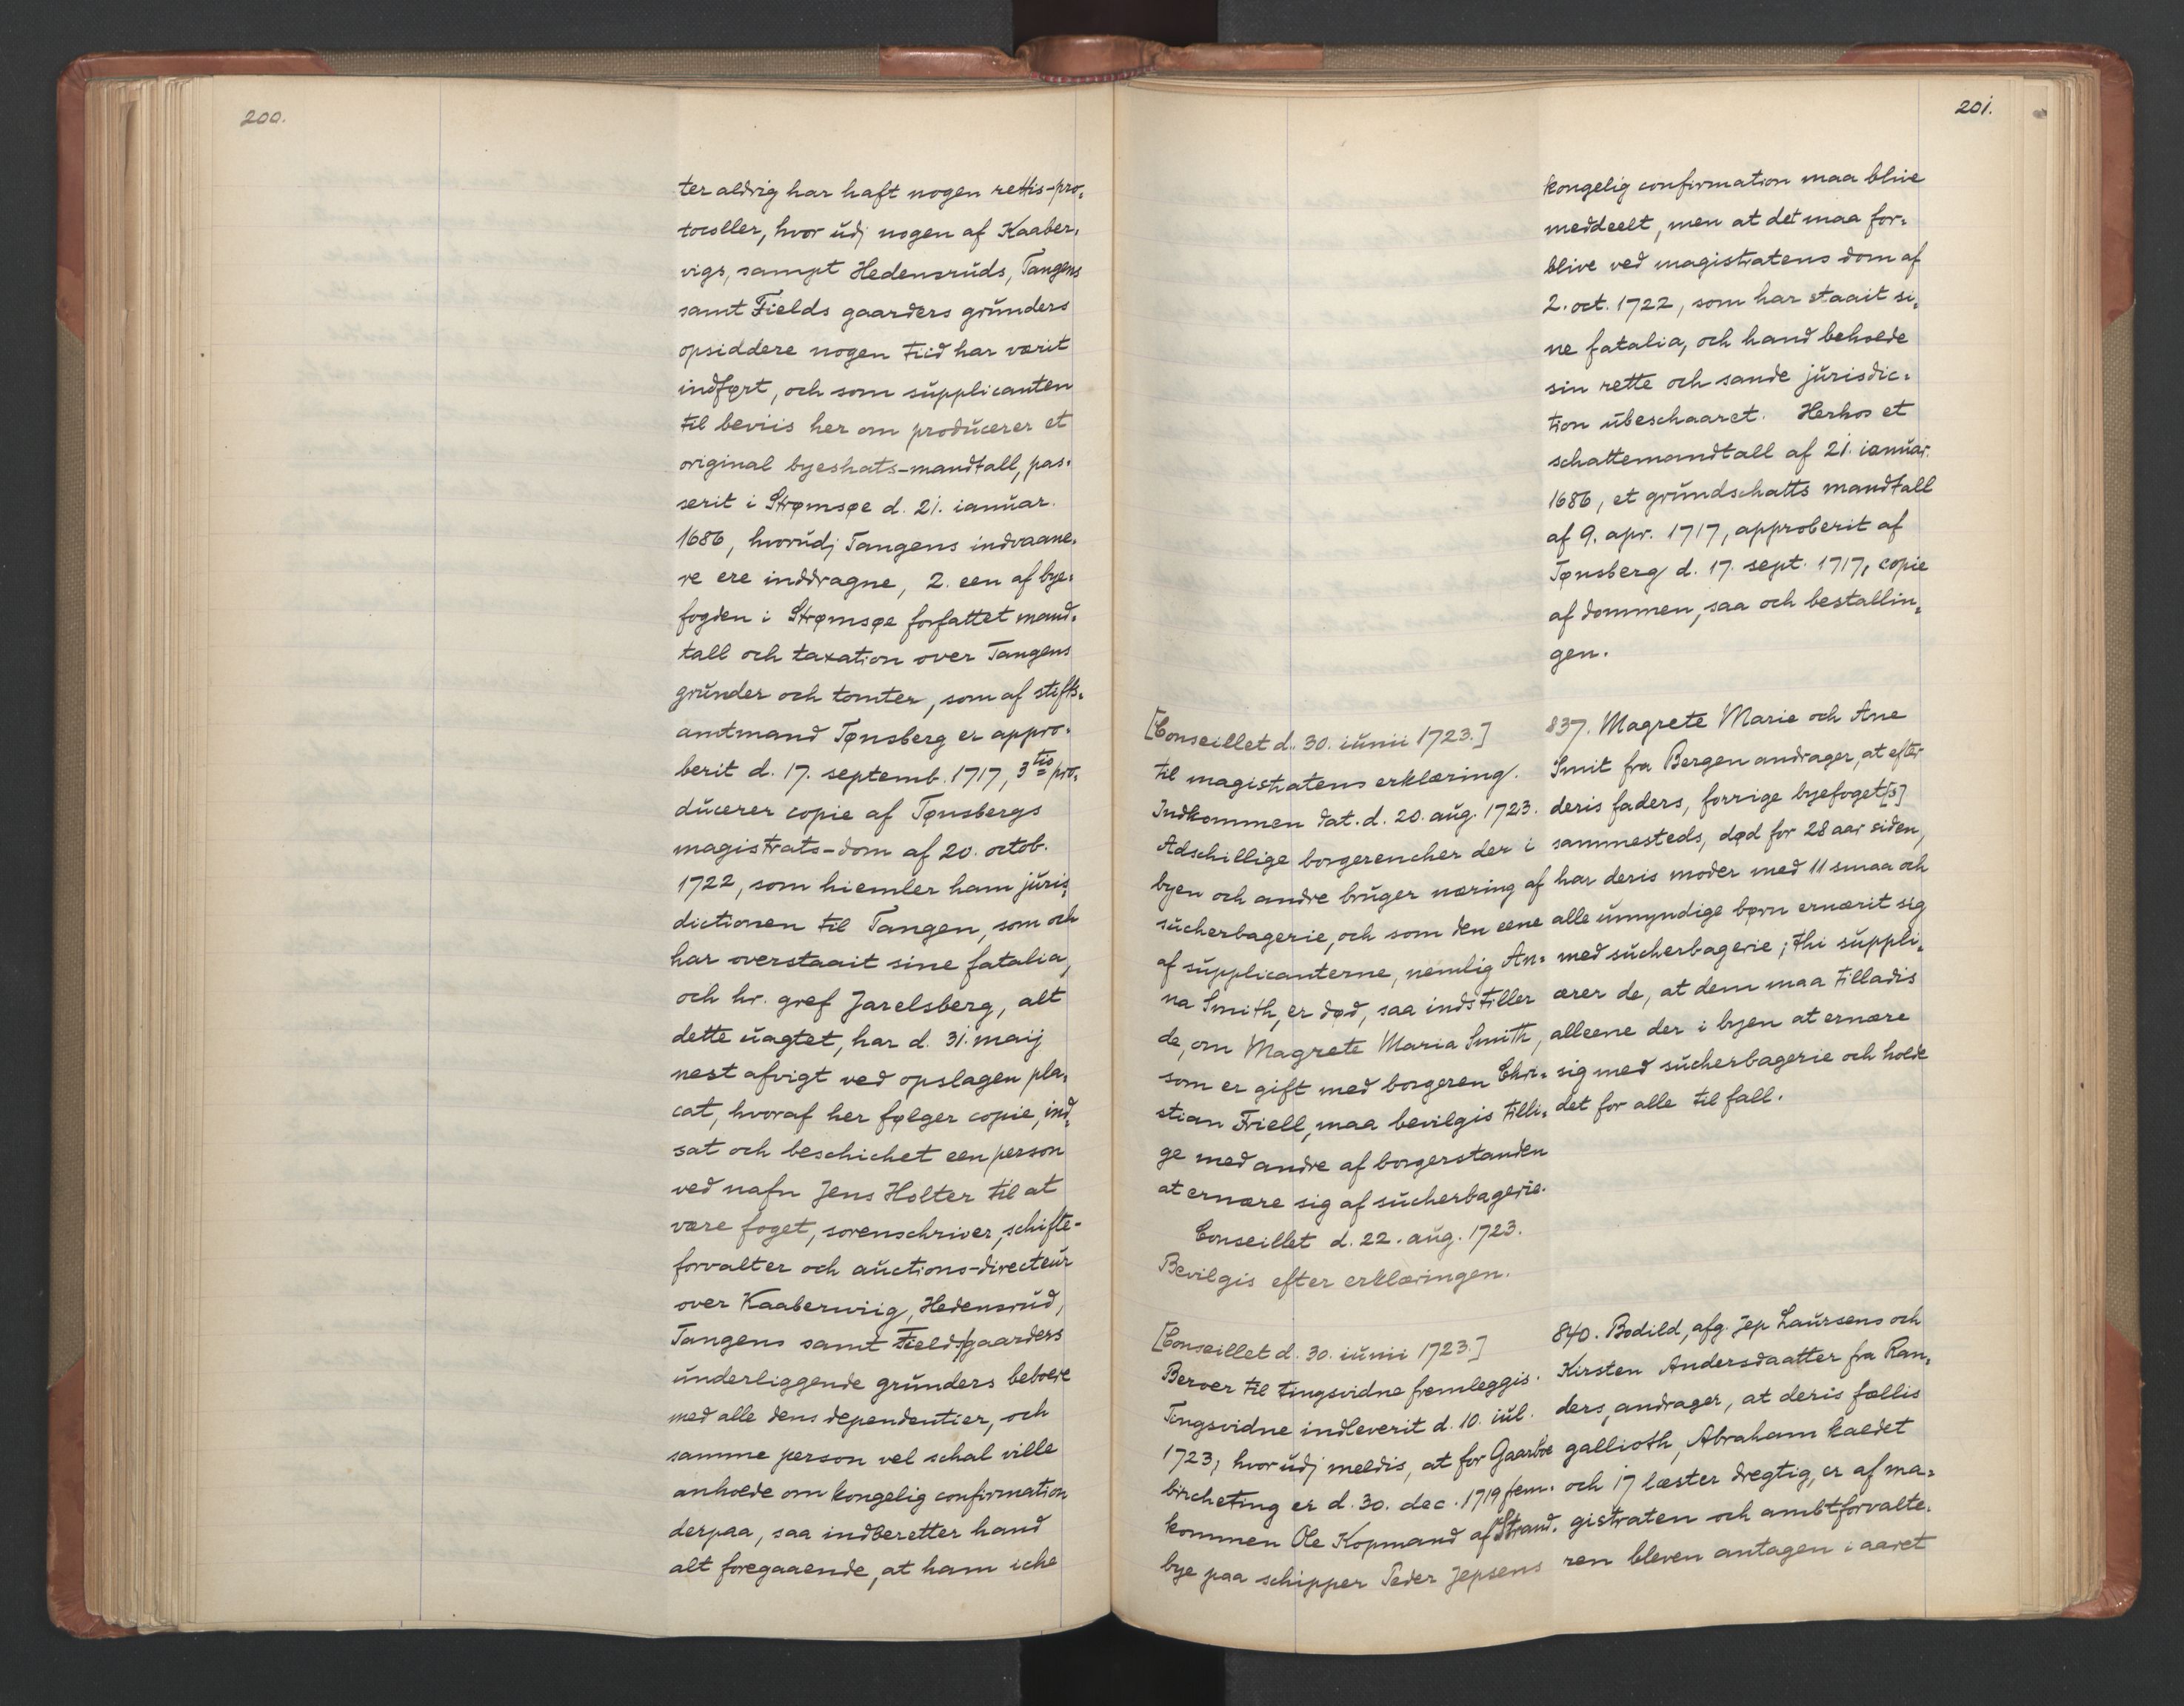 200.
ter aldrig har haft nogen rettis-pro,
tocoller, hvor udj nogen af Kaaber,
vigs, sampt Hedensruds, Tangens
samt Fields gaarders grunders
opsiddere nogen tiid har værit
indført, och som supplicanten
til beviis her om producerer et
original byeskats-mandtall, pas,
serit i Strømsøe d. 21. ianuar.
1686, hvorudj Tangens indvaane,
re ere inddragne, 2. een af bye,
fogden i Strømsøe forfattet mand,
tall och taxation over Tangens
grunder och tomter, som af stifts,
amtmand Tønsberg er appro,
berit d. 17. septemb. 1717, 3tio pro,
ducerer copie af Tønsbergs
magistrats-dom af 20. octob.
1722, som hiemler ham juris,
dictionen til Tangen, som och
har overstaait sine fatalia,
och hr. gref Jarelsberg, alt
dette uagtet, har d. 31. maij
nest afvigt ved opslagen pla,
cat, hvoraf her følger copie, ind,
sat och beschichet een person
ved nafn Jens Holter til at
være foget, sorenschriver, schifte-
forvalter och auctions-directeur
over Kaaberwiig, Hedensrud,
Tangens samt Fields gaarders
underliggende grunders beboere
med alle dens dependentier, och
samme person vel schal ville
anholde om kongelig confirmation
derpaa, saa indberetter hand
alt foregaaende, at ham iche
201.
kongelig confirmation maa blive
meddeelt, men at det maa for,
blive ved magistratens dom af
2. oct. 1722, som har staait si,
ne fatalia, och hand beholde
sin rette och sande jurisdic,
tion ubeschaaret. Herhos et
schattemandtall af 21. ianuar.
1686, et grundschatts mandtall
af 9. apr. 1717, approberit af
Tønsberg d. 17. sept. 1717, copie
af dommen, saa och bestallin,
gen.
[Conseillet d. 30. iunii 1723.]
til magistratens erklæring.
Indkommen dat. d. 20. aug. 1723.
Adschillige borgerencher der i
byen och andre bruger næring af
sucherbagerie, och som den eene
af supplicanterne, nemlig An,
na Smith, er død, saa indstiller
de, om Magrete Maria Smith,
som er gift med borgeren Chri,
stian Friell, maa bevilgis tilli,
ge med andre af borgerstanden
at ernære sig af sucherbagerie.
Conseillet d. 22. aug. 1723.
Bevilgis efter erklæringen.
837. Magrete Marie och Ane
Smit fra Bergen andrager, at efter
deris faders, forrige byefoget[s]
sammesteds, død for 28 aar siden,
har deris moder med 11 smaa och
alle umyndige børn ernærit sig
med sucherbagerie; thi suppli,
cerer de, at dem maa tilladis
alleene der i byen at ernære
sig med sucherbagerie och holde
det for alle til fall.
[Conseillet d. 30. iunii 1723.]
Beroer til tingsvidne fremleggis.
Tingsvidne indleverit d. 10. iul.
1723, hvorudj meldis, at for Gaarboe
bircheting er d. 30. dec. 1719 frem,
kommen Ole Kopmand af Strand,
bye paa schipper Peder Jepsens
840. Bodild, afg. Jep Laursens och
Kirsten Andersdaatter fra Ran,
ders, andrager, at deris fællis
gallioth, Abraham kaldet
och 17 læster dregtig, er af ma,
gistraten och ambtforvalte,
ren bleven antagen i aaret